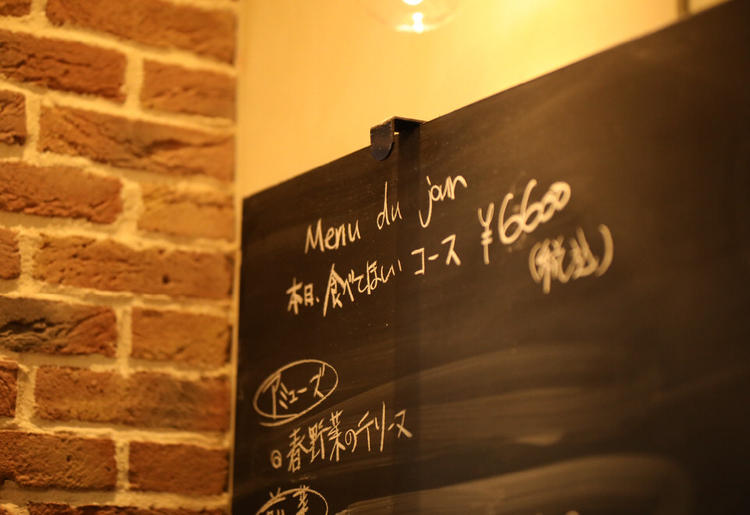 Menu du jour
本日、食べてほしいコース ¥6600
(税込)
アミューズ
春野菜のテリーヌ